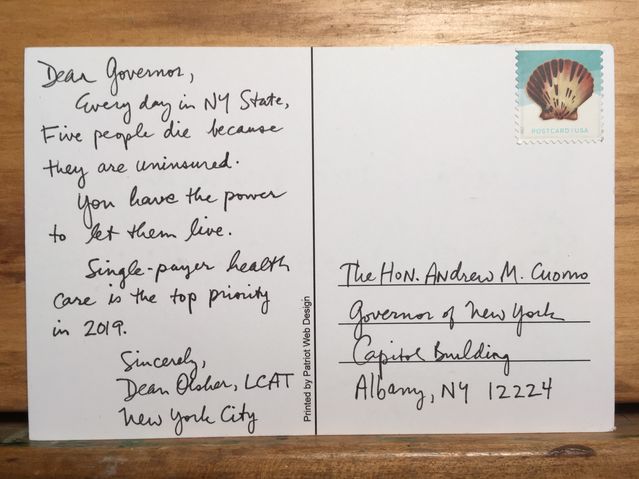 Dear Governor,
Every day in NY State,
Five people die because
they are uninsured.
You have the power
to let them live.
Single-payer health
care is the top priority
in 2019.
Sincerely,
Dean Olsher, LCAT
New York City
Printed by Patriot Web Design
POSTCARD | USA
The Hon. Andrew M. Cuomo
Governor of New York
Capitol Building
Albany, NY 12224